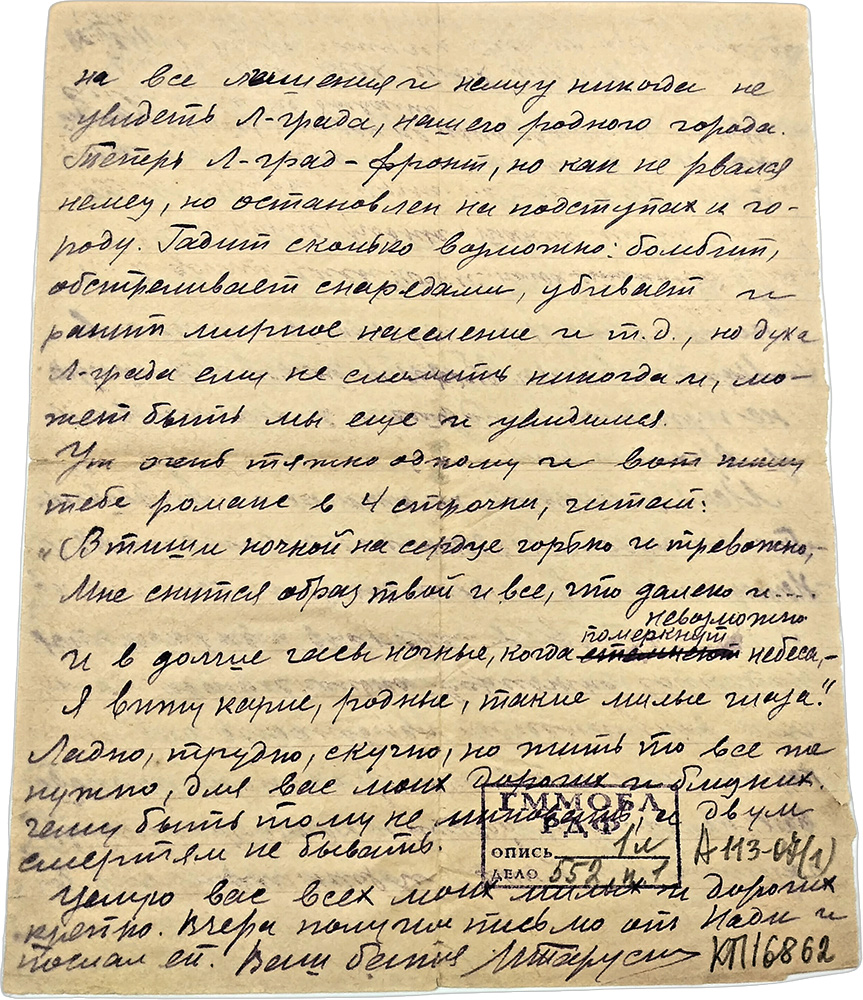 на все лишения и немцу никогда не
увидеть Л-града, нашего родного города.
Теперь Л-град-фронт, но как не рвался
немец, но остановлен на подступах к го-
роду. Гадит сколько возможно: бомбит,
обстреливает снарядами, убивает и
ранит мирное население и т.д., но духа
Л-града ему не сломить никогда и, мо-
жет быть мы еще и увидимся.
Уж очень тяжко одному и вот пишу
тебе романс в 4 строчки, читай:
"В тиши ночной на сердце горько и тревожно,-
Мне снится образ твой и все, что далеко и...
невозможно
померкнут
И в долгие часы ночные, когда стемнеют небеса,-
Я вижу карие, родные, такие милые глаза."
Ладно, трудно, скучно, но жить то все же
нужно, для вас моих дорогих и близких.
Чему быть тому не миновать, и двум
смертям не бывать.
Целую вас всех моих милых и дорогих
крепко. Вчера получил письмо от Нади и
послал ей. Ваш
ГММОБЛ
РДФ
ОПИСЬ 1л
ДЕЛО 552 п.1
А 113-04(1)
КП16862